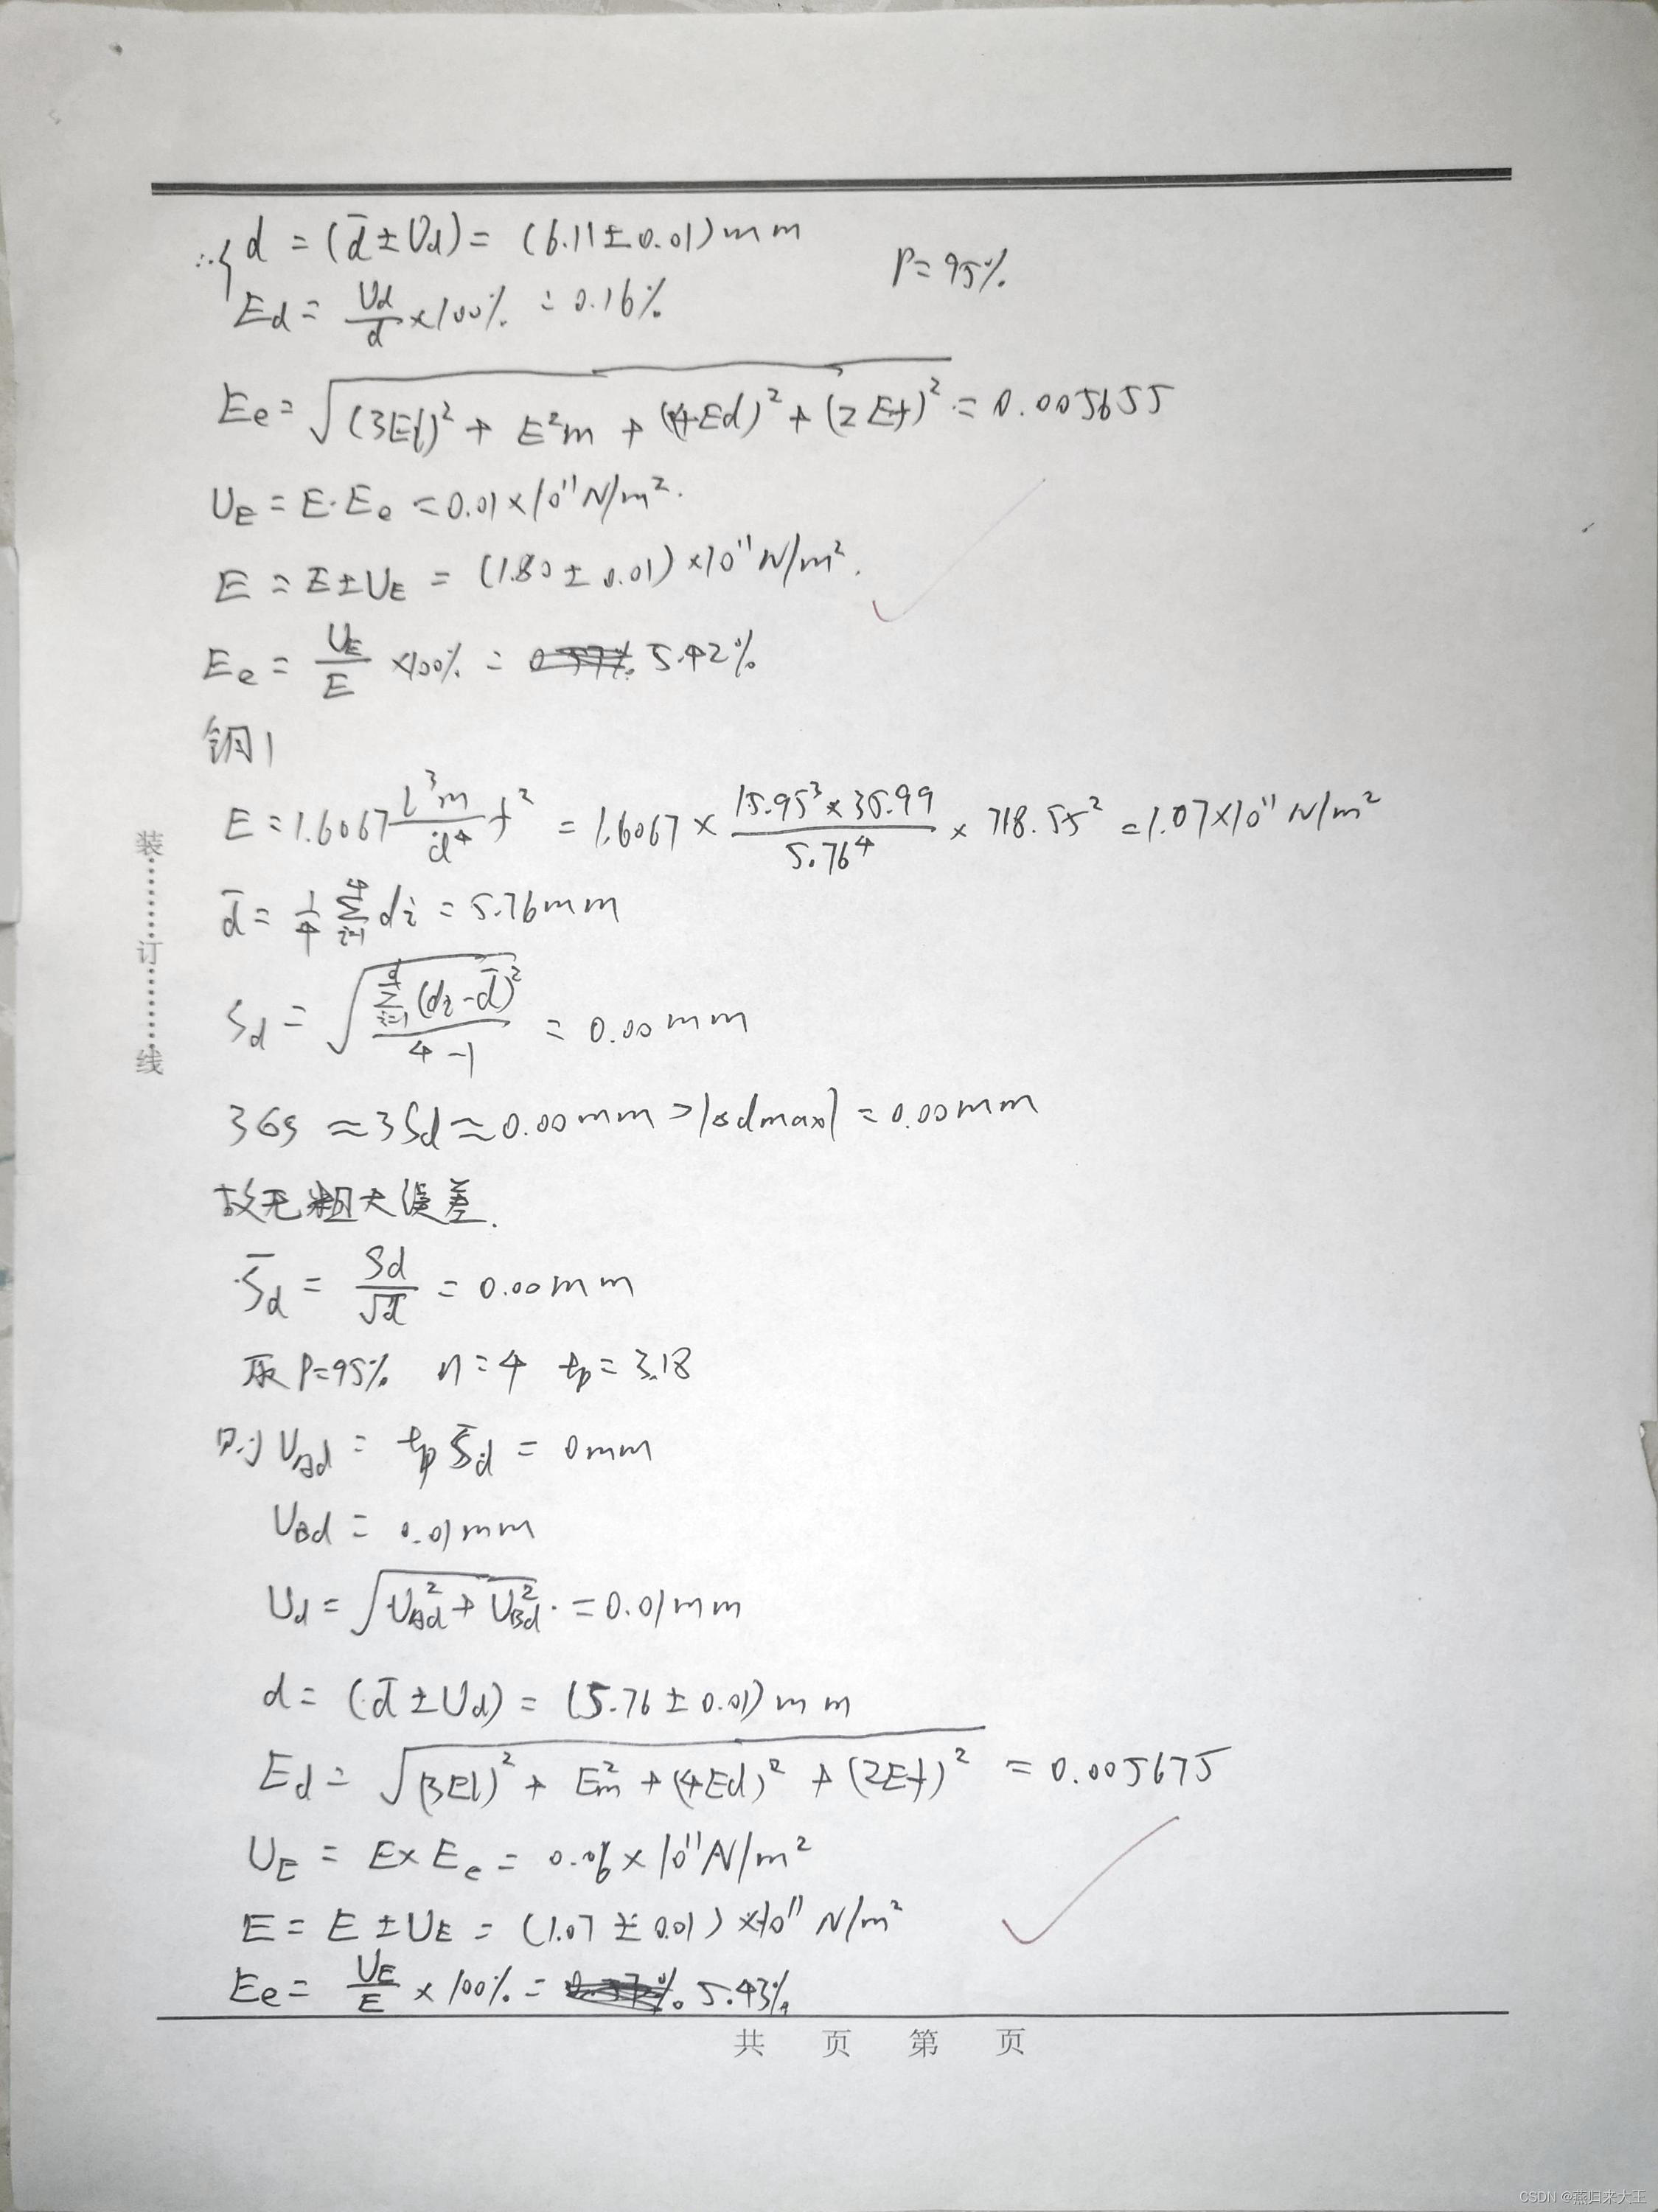 ∴{ d = (d̄ ± Ud) = (6.11 ± 0.01) mm
P = 95%
Ed = Ud/d × 100% = 0.16%
Ee = √((3El)² + E²m + (4Ed)² + (2Ef)²) = 0.005655
UE = E·Ee = 0.01 × 10¹¹ N/m².
E = E ± UE = (1.80 ± 0.01) × 10¹¹ N/m².
Ee = UE/E × 100% = 5.42%
铜1
E = 1.6067 l³m/d⁴ f² = 1.6067 × (15.95³ × 35.99)/5.76⁴ × 718.55² = 1.07 × 10¹¹ N/m²
d̄ = 1/4 Σ(i=1→4) di = 5.76 mm
Sd = √(Σ(i=1→4) (di - d̄)² / (4 - 1)) = 0.00 mm
3σs ≈ 3Sd ≈ 0.00 mm > |Δdmax| = 0.00 mm
故无粗大误差.
S̄d = Sd/√4 = 0.00 mm
取 P = 95% n = 4 tp = 3.18
则 UAd = tp S̄d = 0 mm
UBd = 0.01 mm
Ud = √(UAd² + UBd²) = 0.01 mm
d = (d̄ ± Ud) = (5.76 ± 0.01) mm
Ed = √((3El)² + Em² + (4Ed)² + (2Ef)²) = 0.005675
UE = E × Ee = 0.06 × 10¹¹ N/m²
E = E ± UE = (1.07 ± 0.01) × 10¹¹ N/m²
Ee = UE/E × 100% = 5.43%
装 订 线
共 页 第 页
CSDN @燕归来大王